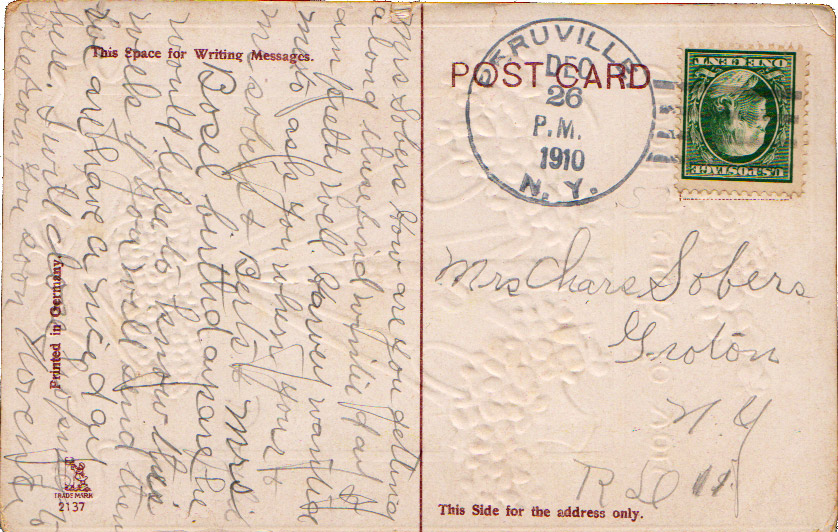 This Space for Writing Messages.
Mrs Sobers How are you getting
along
am pretty well. Harvey wanted
me to ask you when your &
Mr sobers & Berts & Mrs
birthday are he
would like to know
if you will send them
we are have a nice day
here. I will close hoping to
here from you soon Florence
Printed in Germany.
TRADE MARK
2137
POST CARD
PERUVILLE
DEC
26
P.M.
1910
N.Y.
U.S. POSTAGE
ONE CENT
Mrs Chars Sobers
Groton
N Y
This Side for the address only.